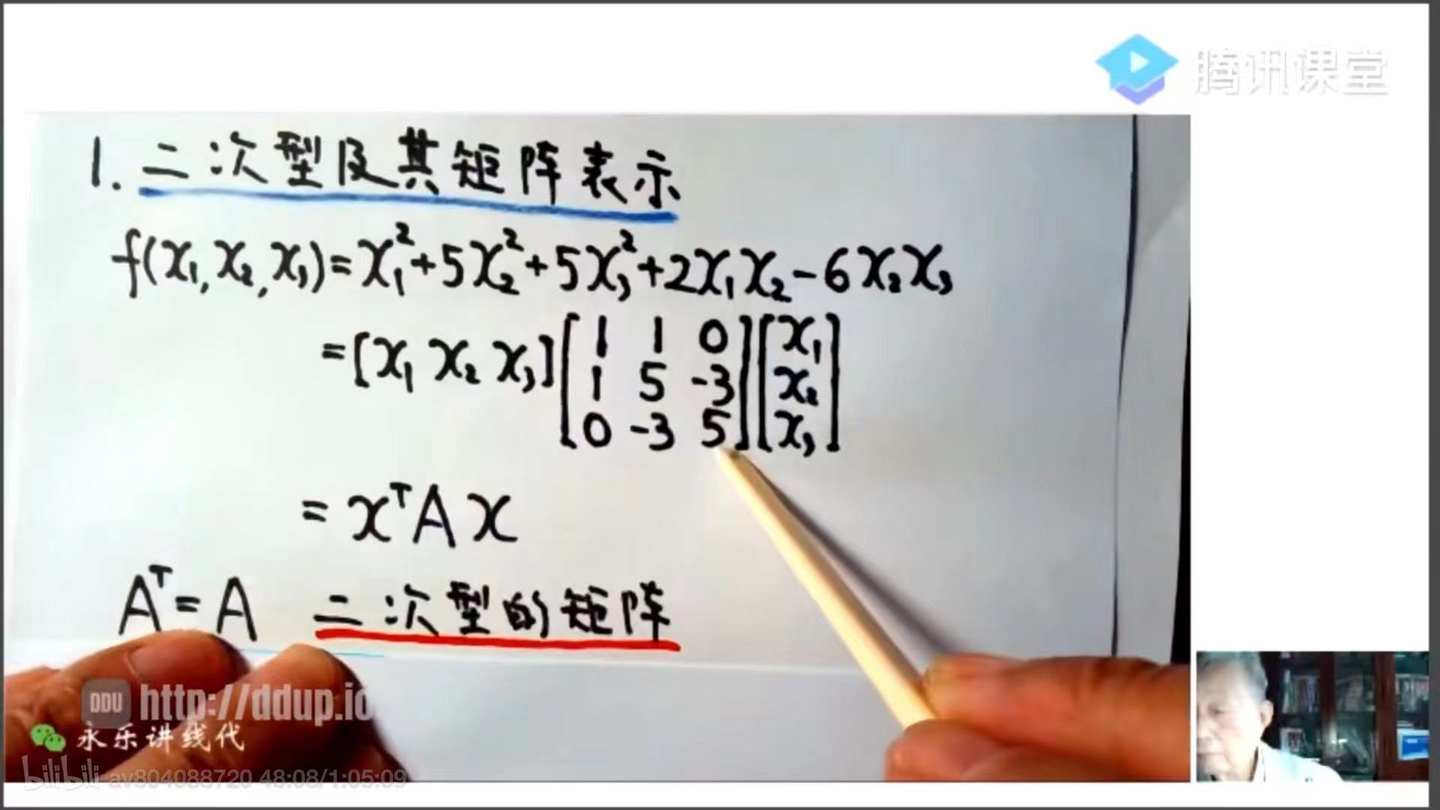 腾讯课堂
1. 二次型及其矩阵表示
f(x₁, x₂, x₃) = x₁² + 5x₂² + 5x₃² + 2x₁x₂ - 6x₂x₃
= [x₁ x₂ x₃] [1 1 0] [x₁]
[1 5 -3] [x₂]
[0 -3 5] [x₃]
= xᵀAx
Aᵀ = A 二次型的矩阵
DDU http://ddup.io
永乐讲线代
bilibili av804088720 48:08/1:05:09